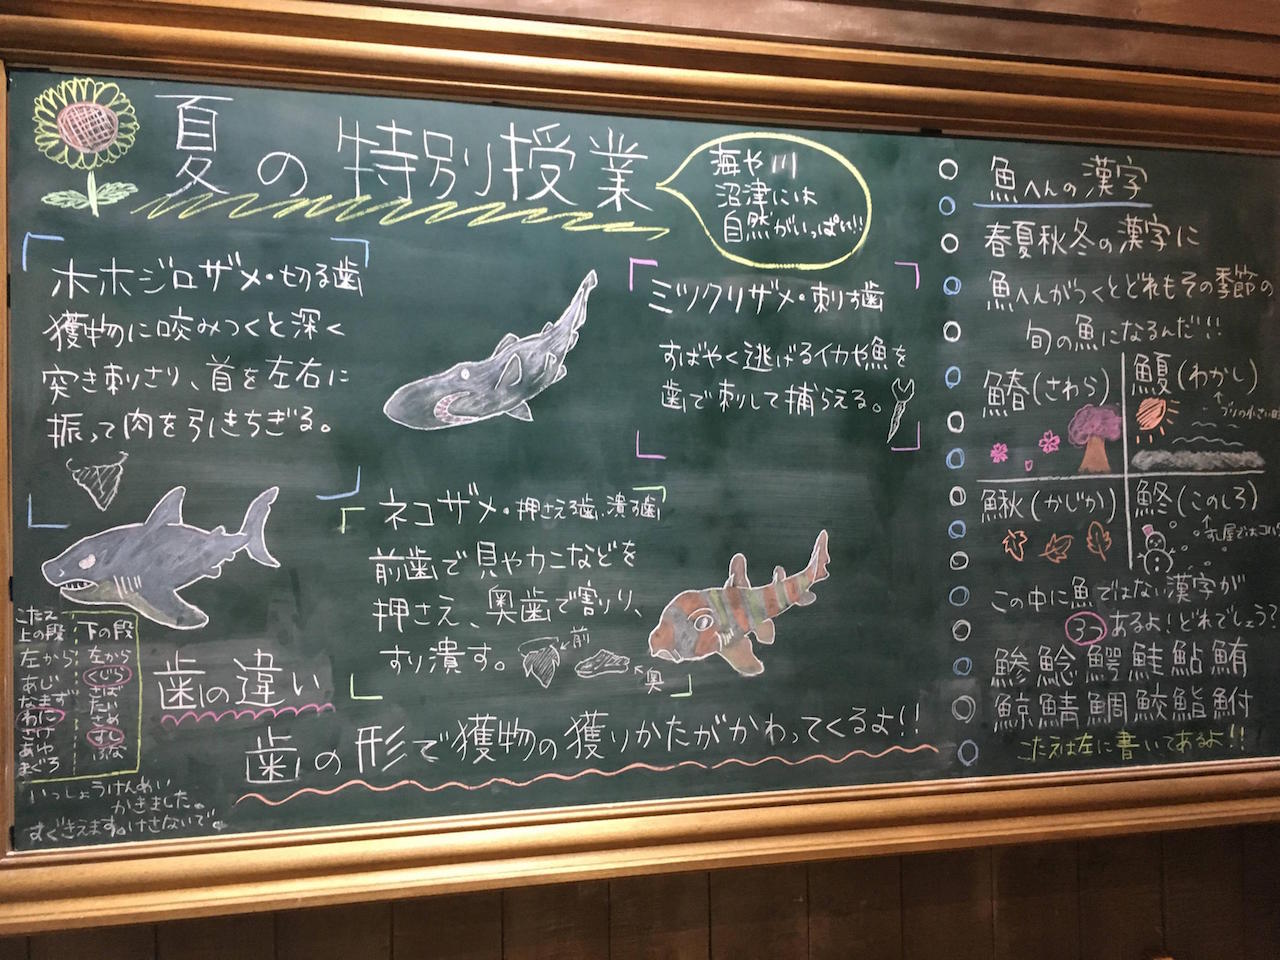 夏の特別授業
海や川
沼津には
自然がいっぱい!!
ホホジロザメ・切る歯
獲物に咬みつくと深く
突き刺さり、首を左右に
振って肉を引きちぎる。
ミツクリザメ・刺す歯
すばやく逃げるイカや魚を
歯で刺して捕らえる。
ネコザメ・押さえる歯、潰す歯
前歯で貝やカニなどを
押さえ、奥歯で割り、
すり潰す。
前
奥
歯の違い
歯の形で獲物の獲りかたがかわってくるよ!!
こたえ
上の段
左から
あじ
なまず
わに
さけ
あゆ
まぐろ
下の段
左から
くじら
さば
たい
さめ
すし
ふな
いっしょうけんめい
かきました。
すぐきえます。けさないで。
魚へんの漢字
春夏秋冬の漢字に
魚へんがつくとどれもその季節の
旬の魚になるんだ!!
鰆(さわら)
魚夏(わかし)
ブリの小さい時
鰍(かじか)
鮗(このしろ)
この中に魚ではない漢字が
3つあるよ!どれでしょう?
鯵鯰鰐鮭鮎鮪
鯨鯖鯛鮫鮨鮒
こたえは左に書いてあるよ!!